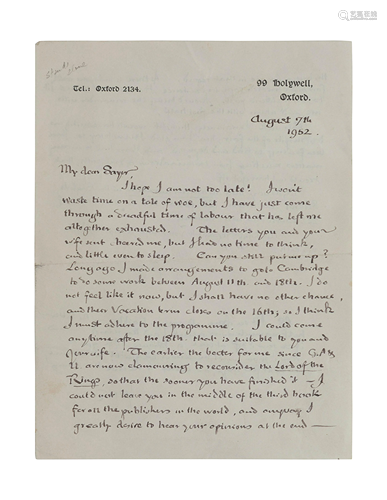 Tel.: Oxford 2134.
99 Holywell,
Oxford.
August 7th
1952.
My dear Sayer,
I hope I am not too late! I won't
waste time on a tale of woe, but I have just come
through a dreadful time of labour that has left me
altogether exhausted. The letters you and your
wife sent, heartened me, but I had no time to think,
and little even to sleep. Can you still put me up?
Long ago I made arrangements to go to Cambridge
to do some work between August 11th and 18th. I do
not feel like it now, but I shall have no other chance,
and their Vacation term closes on the 16th; so I think
I must adhere to the programme. I could come
any time after the 18th. that is suitable to you and
your wife. The earlier the better for me since G.A &
U. are now clamouring to reconsider the Lord of the
Rings, so that the sooner you have finished it — I
could not leave you in the middle of the third book
for all the publishers in the world, and anyway I
greatly desire to hear your opinions at the end —